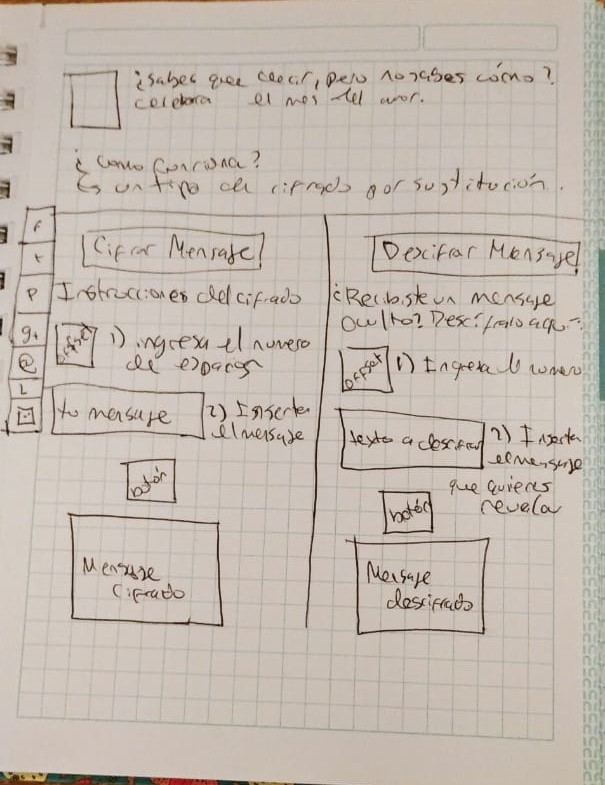 ¿Sabes que decir, pero no sabes cómo?
celebra el mes del amor.
¿Como funciona?
Es un tipo de cifrado por sustitución.
F
t
P
g+
@
L
Cifrar Mensaje
Instrucciones del cifrado
offset
1) ingresa el numero
de espacios
tu mensaje
2) Inserta
el mensaje
botón
Mensaje
Cifrado
Descifrar Mensaje
¿Recibiste un mensaje
oculto? Descífralo aquí
offset
1) Ingresa el numero
texto a descifrar
2) Inserta
el mensaje
que quieres
revelar
botón
Mensaje
descifrado